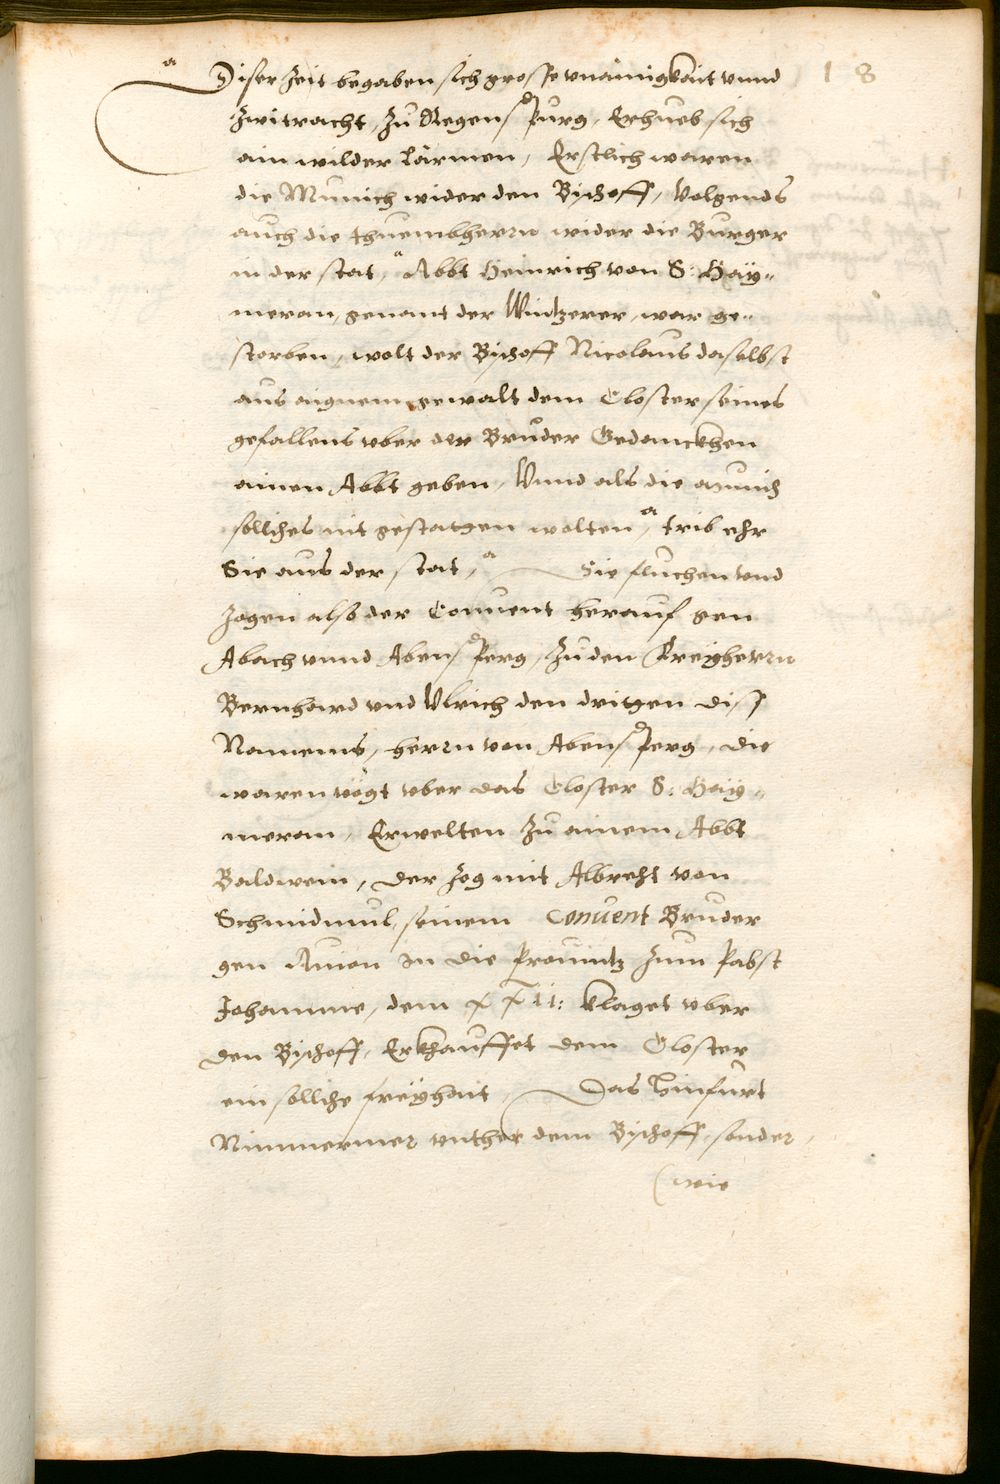 18
Diser Zeit begaben sich grosse vnainigkait vnnd
Zwitracht, Zu Regenspurg, Erhueb sich
ain wilder Lärmen, Erstlich waren
die Munich wider den Bischoff, Volgends
auch die thuembherrn wider die Burger
in der stat, Abbt Heinrich von S: Hay=
meran, genant der Wintzerer, war ge=
storben, wolt der Bischoff Nicolaus daselbst
aus aignem gewalt dem Closter seines
gefallens vber der Bruder Gedanckhen
ainen Abbt geben, Vnnd als die munich
solliches nit gestatgen wolten, trib ehr
Sie aus der stat, Sie fluchen vnd
Zogen also der Conuent herauf gen
Abach vnnd Abensperg, Zu den Freyherrn
Bernhard vnd Vlrich den dritgen diss
Namens, herrn von Abensperg, die
waren vögt vber das Closter S: Hay=
meran, Erwelten Zu ainem Abbt
Baldwein, der Zog mit Albrecht von
Schmidmul, seinem Conuent Bruder
gen Auion in die Prouintz Zum Pabst
Johanne, dem XXII: klaget vber
den Bischoff, Erkhauffet dem Closter
ein solliche freyhait, Das hinfurt
Nimmermer vnther dem Bischoff, sonder,
(wie